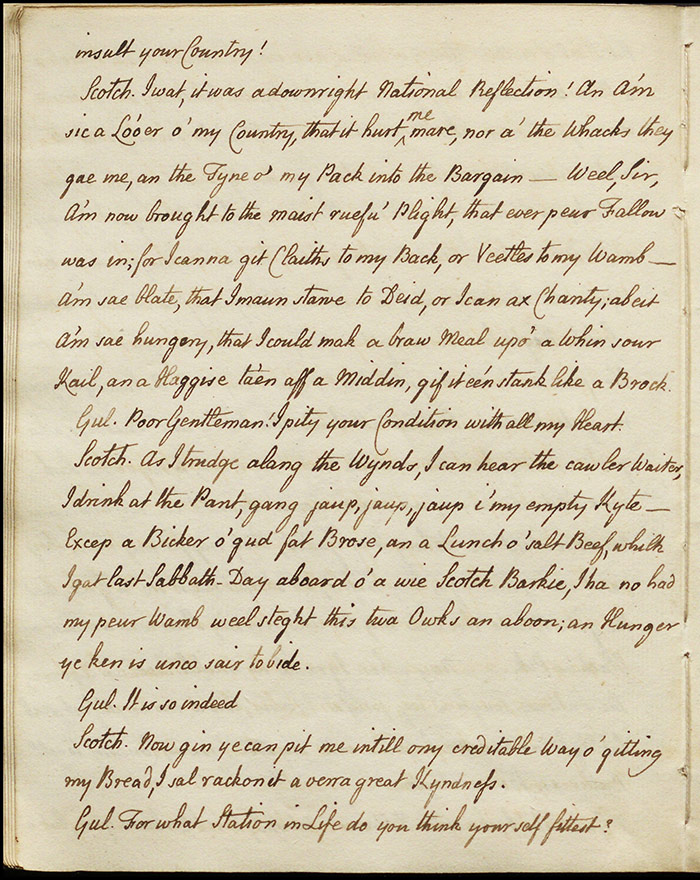 insult your Country!
Scotch. I wat, it was a downright National Reflection! An A'm
sic a Loo'er o' my Country, that it hurt me mare, nor a' the Whacks they
gae me, an the Tyne o' my Pack into the Bargain — Weel, Sir,
A'm now brought to the maist ruefu' Plight, that ever peur Fallow
was in; for I canna git Claiths to my Back, or Veetles to my Wamb —
A'm sae blate, that I maun starve to Deid, or I can ax Charity; abeit
A'm sae hungery, that I could mak a braw Meal upo' a Whin sour
Kail, an a Haggise ta'en aff a Middin, gif it e'en stank like a Brock.
Gul. Poor Gentleman! I pity your Condition with all my Heart.
Scotch. As I trudge alang the Wynds, I can hear the cawler Waiter,
I drink at the Pant, gang jaup, jaup, jaup i' my empty Kyte —
Excep a Bicker o' gud fat Brose, an a Lunch o' salt Beef, whilk
I gat last Sabbath-Day aboard o' a wie Scotch Barkie, I ha no had
my peur Wamb weel steght this twa Owks an aboon; an Hunger
ye ken is unco sair to bide.
Gul. It is so indeed
Scotch. Now gin ye can pit me intill ony creditable Way o' gitting
my Bread, I sal rackon it a verra great Kyndness.
Gul. For what Station in Life do you think yourself fittest?